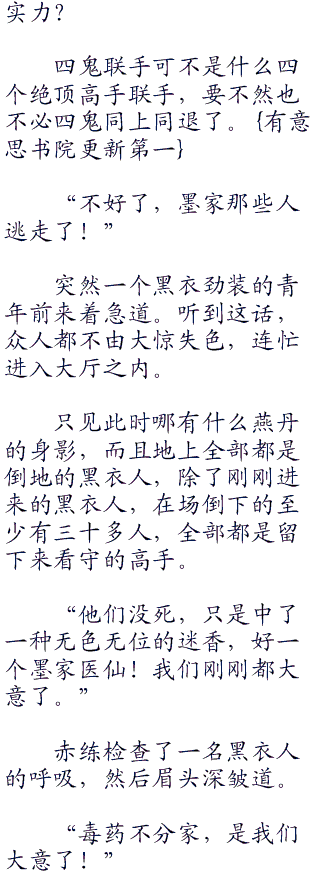 实力？
四鬼联手可不是什么四
个绝顶高手联手，要不然也
不必四鬼同上同退了。{有意
思书院更新第一}
“不好了，墨家那些人
逃走了！”
突然一个黑衣劲装的青
年前来着急道。听到这话，
众人都不由大惊失色，连忙
进入大厅之内。
只见此时哪有什么燕丹
的身影，而且地上全部都是
倒地的黑衣人，除了刚刚进
来的黑衣人，在场倒下的至
少有三十多人，全部都是留
下来看守的高手。
“他们没死，只是中了
一种无色无位的迷香，好一
个墨家医仙！我们刚刚都大
意了。”
赤练检查了一名黑衣人
的呼吸，然后眉头深皱道。
“毒药不分家，是我们
大意了！”